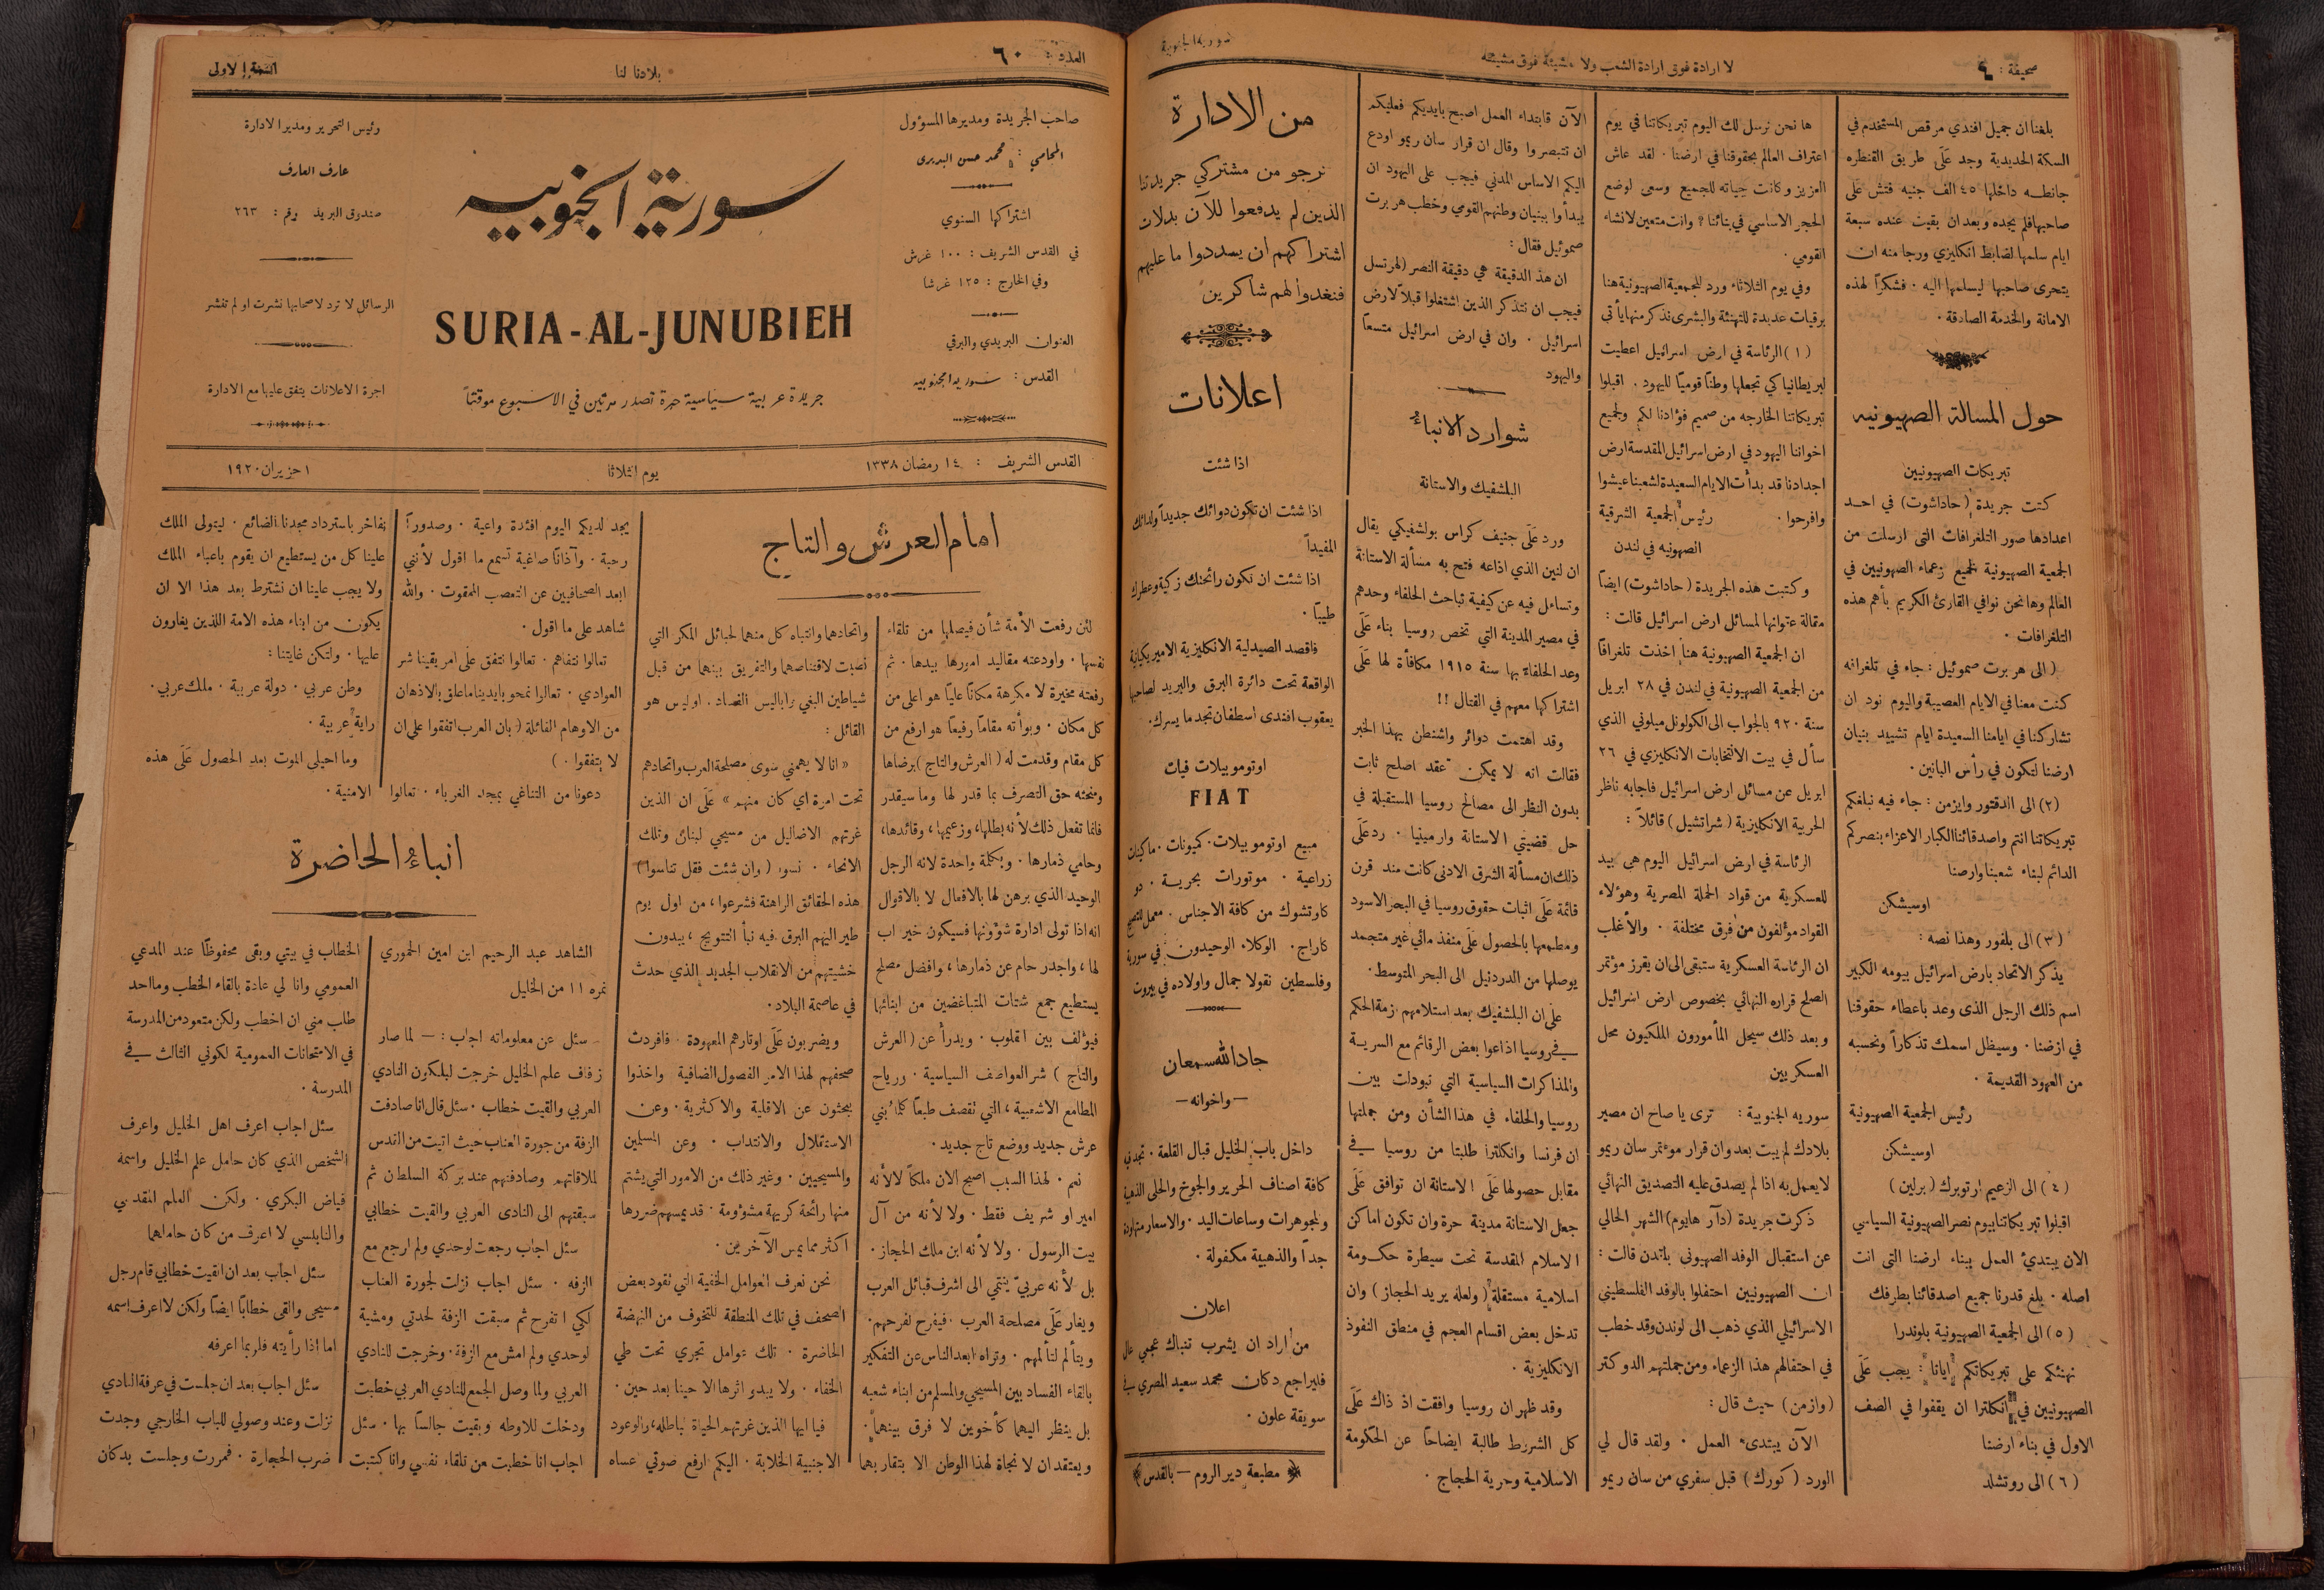 صحيفة : ٤
لا ارادة فوق ارادة الشعب ولا مشيئة فوق مشيئته
سورية الجنوبية
بلغنا ان جميل افندي مرقص المستخدم في
السكة الحديدية وجد عَلَى طريق القنطره
جانطـه داخلها ٤٥ الف جنيه فتش عَلَى
صاحبها فلم يجده وبعد ان بقيت عنده سبعة
ايام سلمها لضابط انكليزي ورجا منه ان
يتحرى صاحبها ليسلمها اليه . فشكراً لهذه
الامانة والخدمة الصادقة .
حول المسالة الصهيونيه
تبريكات الصهيونيين
كتبت جريدة ( حاداشوت ) في احـد
اعدادها صور التلغرافات التى ارسلت من
الجمعية الصهيونية لجميع زعماء الصهونيين في
العالم وها نحن نوافي القارئ الكريم بأهم هذه
التلغرافات .
( الى هربرت صموئيل : جاء في تلغرافه
كنت معنا في الايام العصيبة واليوم نود ان
تشاركنا في ايامنا السعيدة ايام تشييد بنيان
ارضنا لتكون في رأس البانين .
(٢) الى الدقتور وايزمن : جاء فيه نبلغكم
تبريكاتنا انتم واصدقائنا الكبار الاعزاء بنصركم
الدائم لبناء شعبنا وارضنا
اوسيشكن
(٣) الى بلفور وهذا نصه :
يذكر الاتحاد بارض اسرائيل بيومه الكبير
اسم ذلك الرجل الذى وعد باعطاء حقوقنا
في ارضنا . وسيظل اسمك تذكاراً ونحسبه
من العهود القديمة .
رئيس الجمعية الصهيونية
اوسيشكن
( ٤ ) الى الزعيم ارتوبرك ( برلين )
اقبلوا تبريكاتنا بيوم نصر الصهيونية السياسي
الان يبتدئ العمل ببناء ارضنا التى انت
اصله . بلغ قدرنا جميع اصدقائنا بطرفك
(٥) الى الجمعية الصهيونية بلوندرا
نهنئكم على تبريكاتكم ايانا : يجب عَلَى
الصهيونيين في انكلترا ان يقفوا في الصف
الاول في بناء ارضنا
( ٦ ) الى روتشلد
ها نحن نرسل لك اليوم تبريكاتنا في يوم
اعتراف العالم بحقوقنا في ارضنا . لقد عاش
العزيز وكانت حياته للجميع وسعى لوضع
الحجر الاساسي في بنائنا ؟ وانت متعين لانشاء
القومي .
وفي يوم الثلاثاء ورد للجمعية الصهيونية هنا
برقيات عديدة للتهنئة والبشرى نذكر منها يأتي
( ١ ) الرئاسة في ارض اسرائيل اعطيت
لبريطانيا كي تجعلها وطناً قومياً لليهود . اقبلوا
تبريكاتنا الخارجه من صميم فؤادنا لكم ولجميع
اخواننا اليهود في ارض اسرائيل المقدسة ارض
اجدادنا قد بدأت الايام السعيدة لشعبنا عيشوا
وافرحوا . رئيس الجمعية الشرقية
الصهونيه في لندن
وكتبت هذه الجريدة ( حاداشوت ) ايضاً
مقالة عنوانها لمسائل ارض اسرائيل قالت :
ان الجمعية الصهيونية هنا اخذت تلغرافاً
من الجمعية الصهيونية في لندن في ٢٨ ابريل
سنة ٩٢٠ بالجواب الى الكولونل ميلوني الذي
سأل في بيت الانتخابات الانكليزي في ٢٦
ابريل عن مسائل ارض اسرائيل فاجابه ناظر
الحربية الانكليزية ( شراتشيل ) قائلاً :
الرئاسة في ارض اسرائيل اليوم هي بيد
للعسكرية من قواد الحملة المصرية وهؤلاء
القواد مؤلفون من فرق مختلفة . والأغلب
ان الرئاسة العسكرية ستبقى الى ان يقرر مؤتمر
الصلح قراره النهائي بخصوص ارض اسرائيل
وبعد ذلك سيحل المأمورون الملكيون محل
العسكريين
سوريه الجنوبية : ترى يا صاح ان مصير
بلادك لم يبت بعد وان قرار مؤتمر سان ريمو
لا يعمل به اذا لم يصدق عليه التصديق النهائي
ذكرت جريدة ( دآر هايوم ) الشهر الحالي
عن استقبال الوفد الصهيوني بلندن قالت :
ان الصهيونيين احتفلوا بالوفد الفلسطيني
الاسرائيلي الذي ذهب الى لوندن وقد خطب
في احتفالهم هذا الزعماء ومن جملتهم الدوكتر
( وازمن ) حيث قال :
الآن يبتدىء العمل . ولقد قال لي
الورد ( كورك ) قبل سفري من سان ريمو
الآن فابتداء العمل اصبح بايديكم فعليكم
ان تتبصروا وقال ان قرار سان ريمو اودع
اليكم الاساس المدني فيجب على اليهود ان
يبدأوا ببنيان وطنهم القومي وخطب هربرت
صموئيل فقال :
ان هذ الدقيقة هي دقيقة النصر ( لهرتسل
فيجب ان نتذكر الذين اشتغلوا قبلاً لارض
اسرائيل . وان في ارض اسرائيل متسعاً
واليهود
شوارد الانباء
البلشفيك والاستانة
ورد عَلَى جنيف كراس بولشفيكي يقال
ان لنين الذي اذاعه فتح به مسألة الاستانة
وتساءل فيه عن كيفية تباحث الحلفاء وحدهم
في مصير المدينة التي تخص روسيا بناء عَلَى
وعد الحلفاء بها سنة ١٩١٥ مكافأة لها عَلَى
اشتراكها معهم في القتال !!
وقد اهتمت دوائر واشنطن بهذا الخبر
فقالت انه لا يمكن عقد اصلح ثابت
بدون النظر الى مصالح روسيا المستقبلة في
حل قضيتي الاستانة وارمينيا . رد عَلَى
ذلك ان مسألة الشرق الادنى كانت منذ قرن
قائمة عَلَى اثبات حقوق روسيا في البحر الاسود
ومطمعها بالحصول عَلَى منفذ مائي غير متجمد
يوصلها من الدردنيل الى البحر المتوسط .
على ان البلشفيك بعد استلامهم ازمة الحكم
في روسيا اذاعوا بعض الرقائم مع السريـة
والمذاكرات السياسية التي تبودات بين
روسيا والحلفاء في هذا الشأن ومن جملتها
ان فرنسا وانكلترا طلبتا من روسيا في
مقابل حصولها عَلَى الاستانة ان توافق عَلَى
جعل الاستانة مدينة حرة وان تكون اماكن
الاسلام المقدسة تحت سيطرة حكومة
اسلامية مستقلة ( ولعله يريد الحجاز ) وان
تدخل بعض اقسام العجم في منطق النفوذ
الانكليزية .
وقد ظهر ان روسيا وافقت اذ ذاك عَلَى
كل الشروط طالبة ايضاحاً عن الحكومة
الاسلامية وحرية الحجاج .
من الادارة
نرجو من مشتركي جريدتنا
الذين لم يدفعوا للآن بدلات
اشتراكهم ان يسددوا ما عليهم
فنغدوا لهم شاكرين
اعلانات
اذا شئت
اذا شئت ان تكون دوائك جديداً ولدائك
المفيداً
اذا شئت ان تكون رائحتك زكية وعطرك
طيباً .
فاقصد الصيدلية الانكليزية الاميريكيانية
الواقعة تحت دائرة البرق والبريد لصاحبها
يعقوب افندى اسطفان تجد ما يسرك .
اوتوموبيلات فيات
FIAT
مبيع اوتوموبيلات . كميونات . ماكينات
زراعية . موتورات بحريـة . دو
كارتشوك من كافة الاجناس . معمل لتصليح
كاراج . الوكلاء الوحيدون في سورية
وفلسطين نقولا جمال واولاده في بيروت
جادالله سمعان
— واخوانه —
داخل باب الخليل قبال القلعة . تجد في
كافة اصناف الحرير والجوخ والحلى الذهبية
ولمجوهرات وساعات اليد . والاسعار متهاودة
جداً والذهبية مكفولة .
اعلان
من اراد ان يشرب تنباك عجمي عال
فليراجع دكان محمد سعيد المصري في
سويقة علون .
﴿ مطبعة دير الروم — بالقدس ﴾
العدد : ٦٠
بلادنا لنا
السنة الاولى
صاحب الجريدة ومديرها المسؤول
المحامي : محمد حسن البديرى
اشتراكها السنوي
في القدس الشريف : ١٠٠ غرش
وفي الخارج : ١٢٥ غرشا
العنوان البريدي والبرقي
القدس : سوريه الجنوبيه
سورية الجنوبيه
SURIA-AL-JUNUBIEH
جريدة عربية سياسية حرة تصدر مرتين في الاسبوع موقتاً
رئيس التحرير ومدير الادارة
عارف العارف
صندوق البريد رقم : ٢٦٣
الرسائل لا ترد لاصحابها نشرت او لم تنشر
اجرة الاعلانات يتفق عليها مع الادارة
القدس الشريف : ١٤ رمضان ١٣٣٨
يوم الثلاثا
١ حزيران ١٩٢٠
امام العرش والتاج
لئن رفعت الأمة شأن فيصلها من تلقاء
نفسها . واودعته مقاليد امورها بيدها . ثم
رفعته مخيرة لا مكرهة مكاناً علياً هو اعلى من
كل مكان . وبوأته مقاماً رفيعاً هو ارفع من
كل مقام وقدمت له ( العرش والتاج ) برضاها
ومنحته حق التصرف بما قدر لها وما سيقدر
فانما تفعل ذلك لأنه بطلها ، وزعيمها ، وقائدها ،
وحامي ذمارها . وبكلمة واحدة لانه الرجل
الوحيد الذي برهن لها بالافعال لا بالاقوال
انه اذا تولى ادارة شؤونها فسيكون خير اب
لها ، واجدر حام عن ذمارها ، وافضل مصلح
يستطيع جمع شتات المتباغضين من ابنائها
فيؤلف بين القلوب . ويدرأ عن ( العرش
والتاج ) شر العواصف السياسية . ورياح
المطامع الاشعبية ، التي تقصف طبعاً كلما بني
عرش جديد ووضع تاج جديد .
نعم . لهذا السبب اصبح الان ملكاً لا لأنه
امير او شريف فقط . ولا لأنه من آل
بيت الرسول . ولا لأنه ابن ملك الحجاز .
بل لأنه عربيّ ينتمي الى اشرف قبائل العرب
ويغار عَلَى مصلحة العرب . فيفرح لفرحهم .
ويتألم لتألمهم . وتراه ابعد الناس عن التفكير
بالقاء الفساد بين المسيحي والمسلم من ابناء شعبه
بل ينظر اليهما كأخوين لا فرق بينهما .
ويعتقد ان لا نجاة لهذا الوطن الا بتقاربهما
واتحادهما وانتباه كل منهما لحبائل المكر التي
نصبت لاقتناصهما والتفريق بينهما من قبل
شياطين البغي واباليس الفساد . اوليس هو
القائل :
« انا لا يهمني سوى مصلحة العرب واتحادهم
تحت امرة اي كان منهم » عَلَى ان الذين
غرتهم الاضاليل من مسيحي لبنان وتلك
الانحاء . نسوا ( وان شئت فقل تناسوا )
هذه الحقائق الراهنة فشرعوا ، من اول يوم
طير اليهم البرق فيه نبأ التتويج ، يبدون
خشيتهم من الانقلاب الجديد الذي حدث
في عاصمة البلاد .
ويضربون عَلَى اوتارهم المعهودة . فافردت
صحفهم لهذا الامر الفصول الضافية واخذوا
يبحثون عن الاقلية والاكثرية . وعن
الاستقلال والانتداب . وعن المسلمين
والمسيحيين . وغير ذلك من الامور التي يشتم
منها رائحة كريهة مشؤومة . قد يمسهم ضررها
اكثر مما يمس الآخرين .
نحن نعرف العوامل الخفية التي تقود بعض
الصحف في تلك المنطقة للتخوف من النهضة
الحاضرة . تلك عوامل تجري تحت طي
الخفاء . ولا يبدو اثرها الا حينا بعد حين .
فيا ايها الذين غرتهم الحياة الباطله ، والوعود
الاجنبية الخلابة . اليكم ارفع صوتي عساه
يجد لديكم اليوم افئدة واعية . وصدوراً
رحبة . وآذانا صاغية تسمع ما اقول لأنني
ابعد الصحافيين عن التعصب الممقوت . والله
شاهد على ما اقول .
تعالوا نتفاهم . تعالوا نتفق عَلَى امر يقينا شر
العوادي . تعالوا نمحو بايدينا ما علق بالاذهان
من الاوهام القائلة ( بان العرب اتفقوا على ان
لا يتفقوا . )
دعونا من التناغي بمجد الغرباء . تعالوا
نفاخر باسترداد مجدنا الضائع . ليتولى الملك
علينا كل من يستطيع ان يقوم باعباء الملك
ولا يجب علينا ان نشترط بعد هذا الا ان
يكون من ابناء هذه الامة اللذين يغارون
عليها . ولتكن غايتنا :
وطن عربي . دولة عربية . ملك عربي .
راية عربية .
وما احيلى الموت بعد الحصول عَلَى هذه
الامنية .
انباء الحاضرة
الشاهد عبد الرحيم ابن امين الحموري
نمره ١١ من الخليل
سئل عن معلوماته اجاب : — لما صار
زفاف علم الخليل خرجت لبلكون النادي
العربي والقيت خطاب . سئل قال انا صادفت
الزفة من جورة العناب حيث اتيت من القدس
لملاقاتهم وصادفتهم عند بركة السلطان ثم
سبقتهم الى النادى العربي والقيت خطابي
سئل اجاب رجعت لوحدي ولم ارجع مع
الزفه . سئل اجاب نزلت لجورة العناب
لكي اتفرج ثم سبقت الزفة لحدتي ومشية
لوحدي ولم امش مع الزفة . وخرجت للنادي
العربي ولما وصل الجمع للنادي العربي خطبت
ودخلت للاوطه وبقيت جالساً بها . سئل
اجاب انا خطبت من تلقاء نفسي وانا كتبت
الخطاب في بيتي وبقى محفوظاً عند المدعي
العمومي وانا لي عادة بالقاء الخطب وما احد
طلب مني ان اخطب ولكن متعود من المدرسة
في الامتحانات العمومية لكوني الثالث في
المدرسة .
سئل اجاب اعرف اهل الخليل واعرف
الشخص الذي كان حامل علم الخليل واسمه
فياض البكري . ولكن العلم المقدسي
والنابلسي لا اعرف من كان حاملهما
سئل اجاب بعد ان القيت خطابي قام رجل
مسيحي والقى خطاباً ايضاً ولكن لا اعرف اسمه
اما اذا رأيته فلربما اعرفه
سئل اجاب بعد ان جلست في غرفة النادي
نزلت وعند وصولي للباب الخارجي وجدت
ضرب الحجارة . فمررت وجلست بدكان